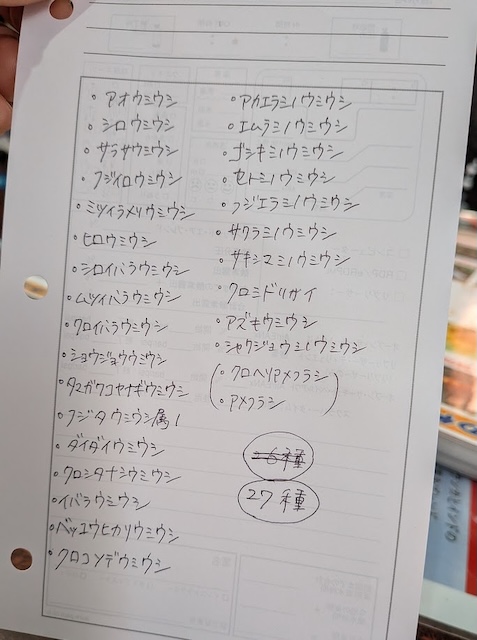 ・アオウミウシ
・シロウミウシ
・サラサウミウシ
・フジイロウミウシ
・ミツイラメリウミウシ
・ヒロウミウシ
・シロイバラウミウシ
・ムツイバラウミウシ
・クロイバラウミウシ
・ショウジョウウミウシ
・タマガワコヤナギウミウシ
・フジタウミウシ属1
・ダイダイウミウシ
・クロシタナシウミウシ
・イバラウミウシ
・ベッコウヒカリウミウシ
・クロコソデウミウシ
・アカエラミノウミウシ
・エムラミノウミウシ
・ゴシキミノウミウシ
・セトミノウミウシ
・フジエラミノウミウシ
・サクラミノウミウシ
・サキシマミノウミウシ
・クロミドリガイ
・アズキウミウシ
・シャクジョウミノウミウシ
(・クロヘリアメフラシ
・アメフラシ)
26種
27種